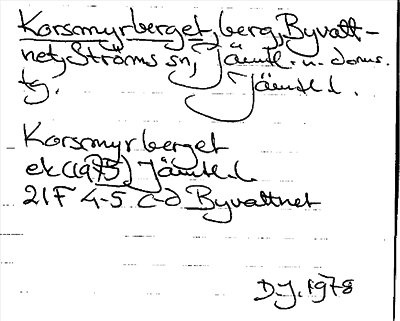 Korsmyrberget, berg, Byvatt-
net, Ströms sn, Jämtl. n. doms.
tg. Jämtl. l.
Korsmyrberget
ek (1975) Jämtl. l.
21F 4-5 c-d Byvattnet
D.J. 1978